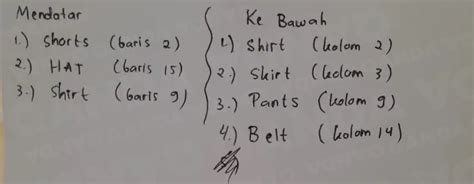 Mendatar
1.) Shorts (baris 2)
2.) HAT (baris 15)
3.) Shirt (baris 9)
Ke Bawah
1.) Shirt (kolom 2)
2.) Skirt (kolom 3)
3.) Pants (kolom 9)
4.) Belt (kolom 14)